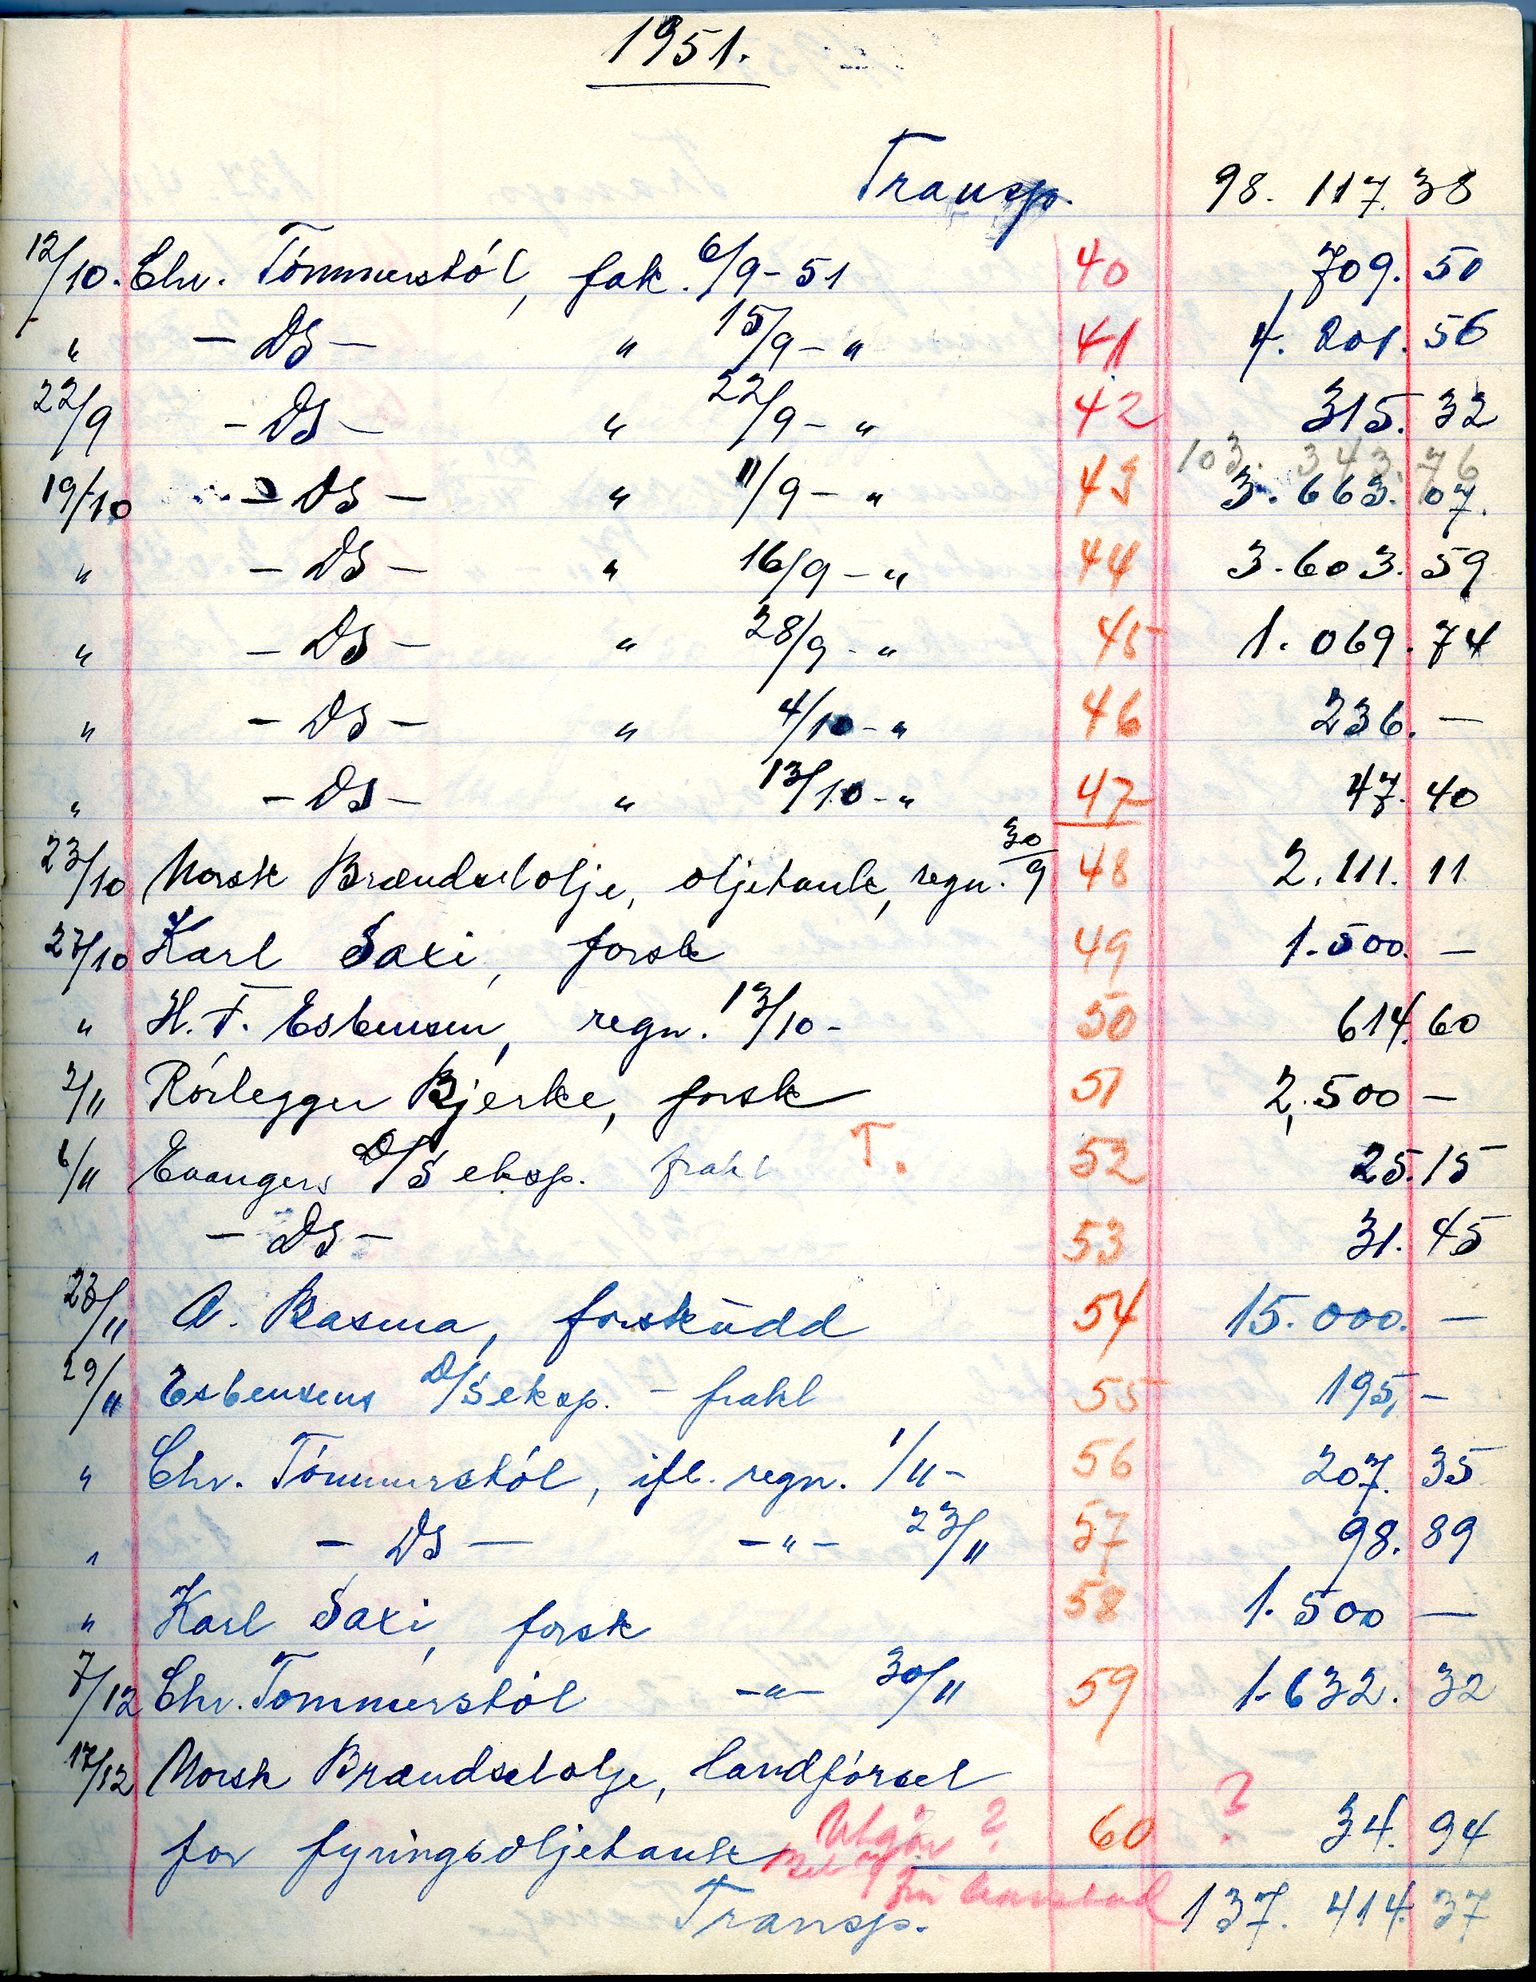 1951.
Transp. 98.117.38
12/10. Chr. Tömmerstöl, fak. 6/9-51 40 709.50
" - DS - " 15/9-" 41 4.201.56
22/9 - DS - " 22/9-" 42 315.32
103.343.76
19/10 - DS - " 11/9-" 43 3.663.07.
" - DS - " 16/9-" 44 3.603.59
" - DS - " 28/9-" 45 1.069.74
" - DS - " 4/10-" 46 236.-
" - DS - " 13/10-" 47 47.40
23/10 Norsk Brændselolje, oljetank, regn. 30/9 48 2.111.11
27/10 Karl Saxi, forsk 49 1.500.-
" H. F. Esbensen, regn. 13/10- 50 614.60
2/11 Rörlegger Bjerke, forsk 51 2.500-
6/11 Evangers D/S eksp. frakt T. 52 25.15
- DS - 53 31.45
23/11 A. Basma, forskudd 54 15.000.-
29/11 Esbensens D/S eksp. - frakt 55 195,-
" Chr. Tömmerstöl, ifl. regn. 1/11- 56 207.35
" - DS - -"- 23/11 57 98.89
" Karl Saxi, forsk 58 1.500-
7/12 Chr. Tömmerstöl -"- 30/11 59 1.632.32
17/12 Norsk Brændselolje, landförsel
for fyringsoljetank Utgår ? 60 ? 34.94
Transp. 137.414.37